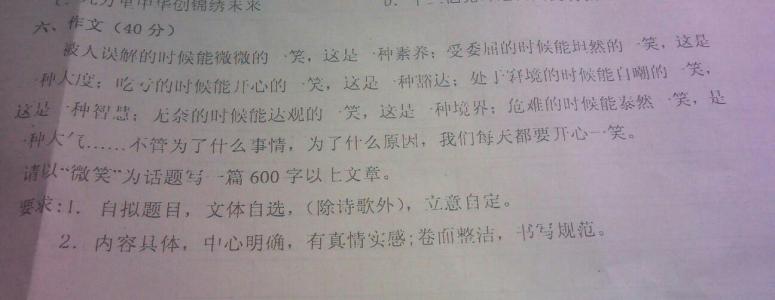 六、作文（40分）
被人误解的时候能微微的一笑，这是一种素养；受委屈的时候能坦然的一笑，这是
一种大度；吃亏的时候能开心的一笑，这是一种豁达；处于窘境的时候能自嘲的一笑，
这是一种智慧；无奈的时候能达观的一笑，这是一种境界；危难的时候能泰然一笑，是
一种大气……不管为了什么事情，为了什么原因，我们每天都要开心一笑。
请以“微笑”为话题写一篇600字以上文章。
要求：1．自拟题目，文体自选，（除诗歌外），立意自定。
2．内容具体，中心明确，有真情实感；卷面整洁，书写规范。